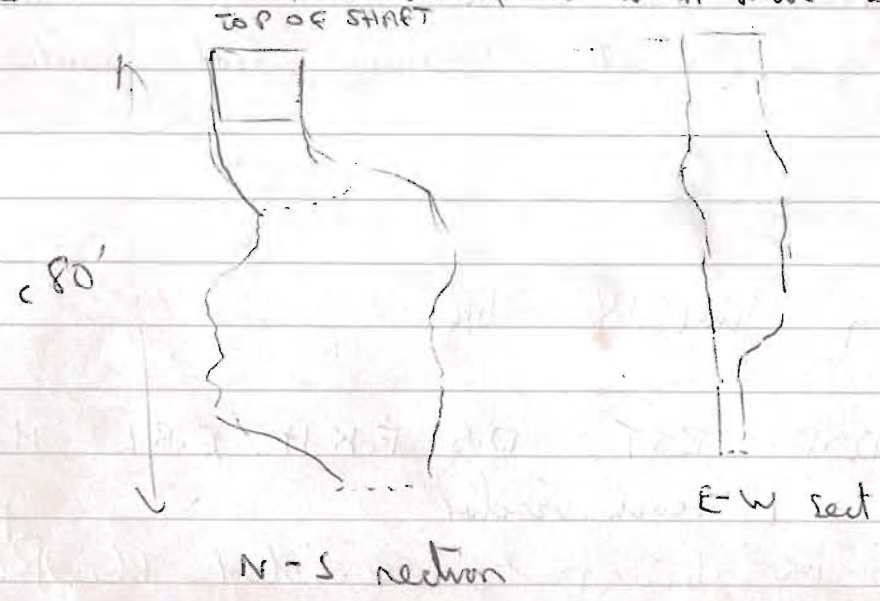 TOP OF SHAFT
c 80'
E-W sect
N-S section